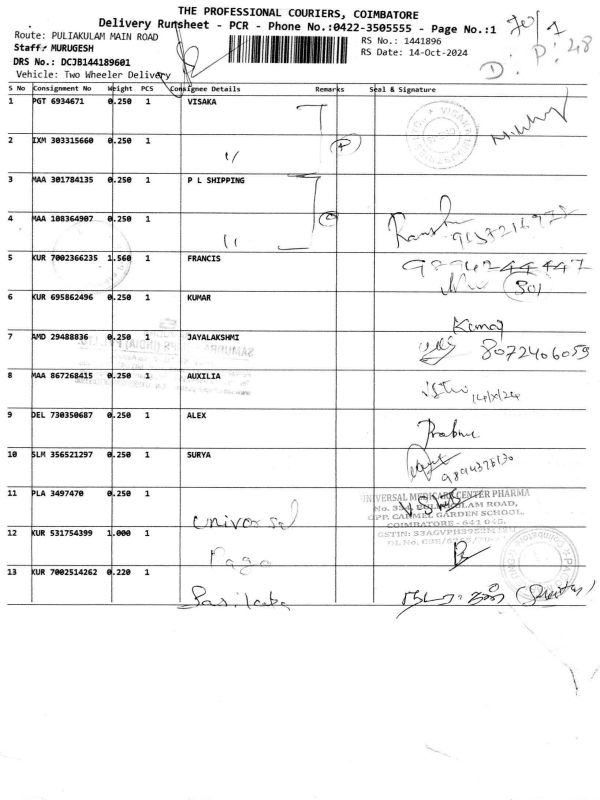 THE PROFESSIONAL COURIERS, COIMBATORE
Delivery Runsheet - PCR - Phone No.:0422-3505555 - Page No.:1
Route: PULIAKULAM MAIN ROAD
RS No.: 1441896
Staff: MURUGESH
RS Date: 14-Oct-2024
DRS No: DCJB144189601
D: P: 48
Vehicle: Two Wheeler Delivery
S No Consignment No Weight PCS Consignee Details Remarks Seal & Signature
1 PGT 6934671 0.250 1 VISAKA
2 IXM 303315660 0.250 1 "
3 MAA 301784135 0.250 1 P L SHIPPING
4 MAA 108364907 0.250 1 "
5 KUR 7002366235 1.560 1 FRANCIS 9894244447
801
6 KUR 695862496 0.250 1 KUMAR Kumar
7 AMD 29488836 0.250 1 JAYALAKSHMI 8072406059
8 MAA 867268415 0.250 1 AUXILIA 14/X/24
9 DEL 730350687 0.250 1 ALEX Prabhu
10 SLM 356521297 0.250 1 SURYA
11 PLA 3497470 0.250 1 Universal
UNIVERSAL MEDICARE CENTER PHARMA
OPP. CARMEL GARDEN SCHOOL,
COIMBATORE - 641 045.
12 KUR 531754399 1.000 1 Pago
13 KUR 7002514262 0.220 1 Sasikala